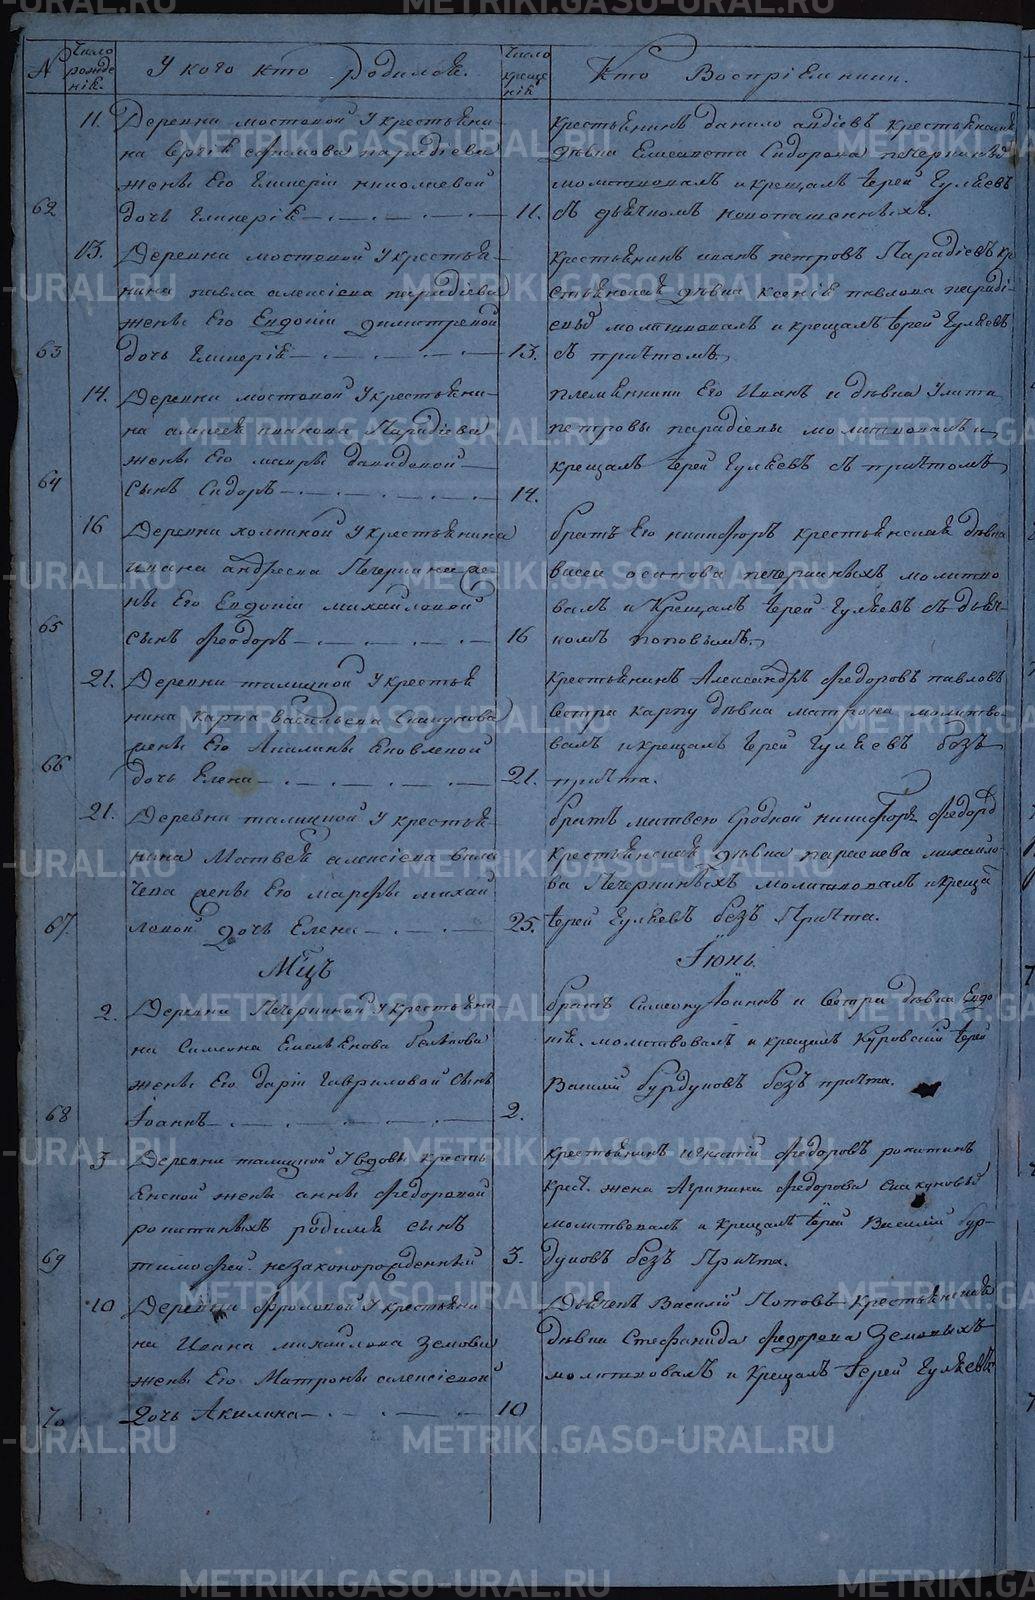 №
Число рожденія.
У кого кто родился.
Число крещенія
Кто Воспріемники.
62
11.
Деревни мостовой У крестьяни-
на Сергія Ефимова парадіева
женѣ Его Гликеріи николаевой
дочь Гликерія
11.
крестьянинъ данило авдіевъ крестьянская
дѣвка Елисавета Сидорова печеркиныхъ
молитвовалъ и крещалъ іерей Гуляевъ
съ дьячкомъ новопашенныхъ.
63
13.
Деревни мостовой У крестья-
нина павла алексіева парадіева
женѣ Его Евдокіи димитревой
дочь Гликерія
13.
крестьянинъ иванъ петровъ Парадіевъ кре
стьянская дѣвка Ксенія павлова паради-
евыхъ молитвовалъ и крещалъ іерей Гуляевъ
съ причтомъ.
64
14.
Деревни мостовой У крестьяни-
на алексея иванова Парадіева
женѣ Его мавры давидовой
Сынъ Сидоръ
14.
племянники Его Иванъ и дѣвка Улита
петровы парадіевы молитвовалъ и
крещалъ іерей Гуляевъ съ причтомъ
65
16
Деревни холкиной У крестьянина
ивана андреева Печеркина же-
нѣ Его Евдокіи михайловой
сынъ Феодоръ
16
братъ Его никифоръ крестьянская дѣвка
васса осипова печеркиныхъ молитво
валъ и Крещалъ іерей Гуляевъ съ дьяч-
комъ поповымъ.
66
21.
Деревни талицкой У крестья
нина карпа васильева Скакунова
женѣ Его Акилинѣ Яковлевой
дочь Елена
21.
крестьянинъ Александръ Федоровъ павловъ
сестра карпу дѣвка матрона молитво-
валъ и крещалъ іерей Гуляевъ безъ
причта.
67.
21.
Деревни талицкой У крестья-
нина Матвея алексіева
женѣ Его марфы михай
ловой дочь Елена
25.
братъ матвею Сродной никифоръ Федоровъ
крестьянская дѣвка парасковa михайло-
ва Печеркиныхъ молитвовалъ и крещалъ
іерей Гуляевъ безъ Причта.
Мцъ
Іюнь.
68
2.
Деревни Печеркиной У крестьяни
на Симеона Емельянова бѣлякова
женѣ Его даріи Гавриловой Сынъ
Іоаннъ
2.
братъ Симеону Іоаннъ и Сестра дѣвка Евдо
кія. молитвовалъ и крещалъ Куровскій іерей
Василій бурдуковъ безъ причта.
69
3
Деревни талицкой У вдовы кресть
янской жены анны Федоровой
ропиткиныхъ родился сынъ
тимофей незаконорожденный
3.
крестьянинъ Федоровъ ропиткинъ
крест. жена Агрипина Федорова Скакуновы
молитвовалъ и крещалъ іерей Василій бур-
дуковъ безъ Причта.
70
10
Деревни Фроловой У крестьяни
на Ивана михайлова Земова
женѣ Его Матроны алексіевой
дочь Акилина
10
Дьячекъ Василій Поповъ Крестьянская
дѣвка Стефанида Федорова Земовыхъ
молитвовалъ и крещалъ Іерей Гуляевъ
METRIKI.GASO-URAL.RU